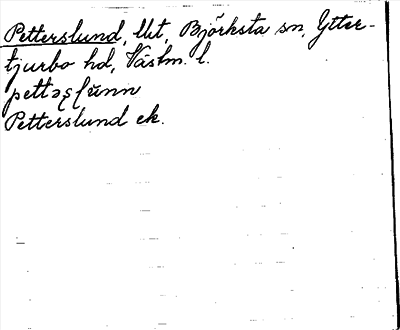 Petterslund, lht, Björksta sn, Ytter-
tjurbo hd, Västm. l.
pettəʂlunn
Petterslund ek.